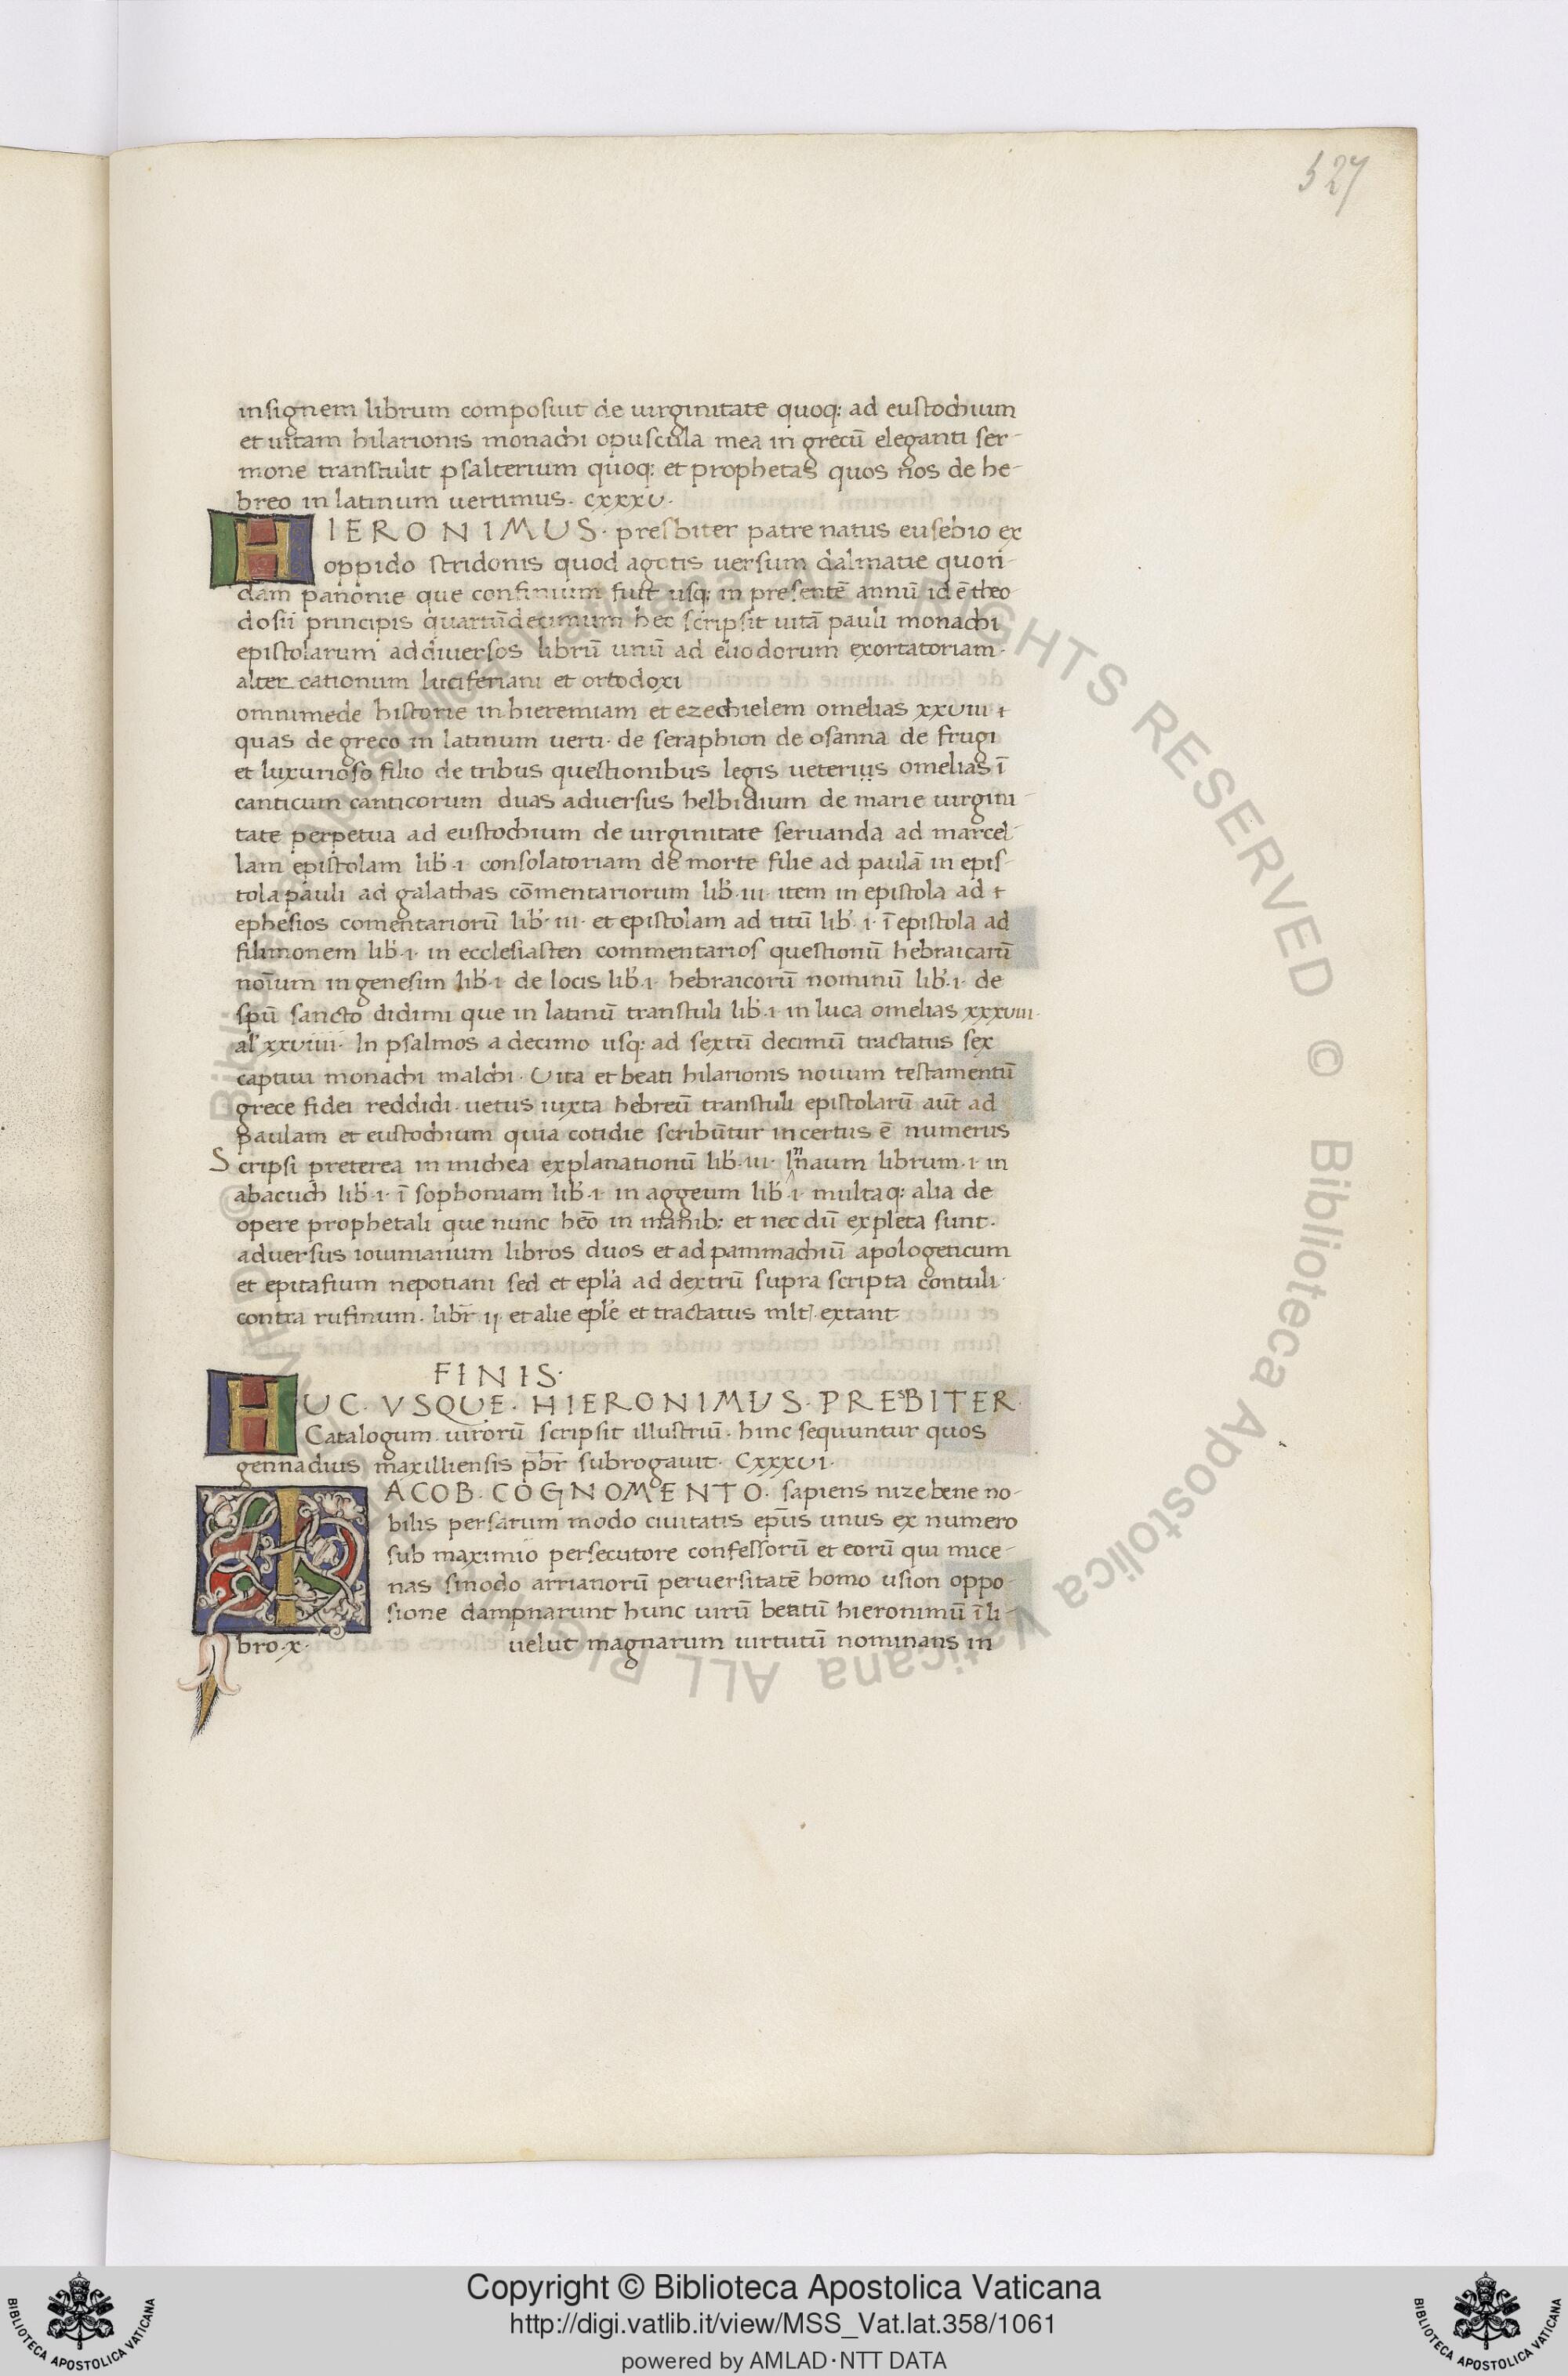 527
insignem librum composuit de uirginitate quoq: ad eustochium
et uitam hilarionis monachi opuscula mea in grecū eleganti ser-
mone transtulit psalterium quoq: et prophetas quos nos de he-
breo in latinum uertimus. cxxxv.
HIERONIMUS. presbiter patre natus eusebio ex
oppido stridonis quod agotis uersum dalmatie quon-
dam panonie que confinium fuit usq: in presentē annū id ē theo
dosii principis quartūdecimum hec scripsit uitā pauli monachi
epistolarum ad diuersos librū unū ad eliodorum exortatoriam.
alter cationum luciferiani et ortodoxi
omnimede historie in hieremiam et ezechielem omelias xxviii
quas de greco in latinum uerti. de seraphion de osanna de frugi
et luxurioso filio de tribus questionibus legis ueterius omelias ī
canticum canticorum duas aduersus helbidium de marie uirgini-
tate perpetua ad eustochium de uirginitate seruanda ad marcel-
lam epistolam lib̄.i. consolatoriam de morte filie ad paulā in epis-
tola pauli ad galathas cōmentariorum lib̄.iii. item in epistola ad
ephesios comentariorū lib̄.iii. et epistolam ad titū lib̄.i. ī epistola ad
filimonem lib̄.i. in ecclesiasten commentarios questionū hebraicarū
noīum in genesim lib̄.i. de locis lib̄.i. hebraicorū nominū lib̄.i. de
spū sancto didimi que in latinū transtuli lib̄.i. in luca omelias xxxviii.
al' xxviiii. In psalmos a decimo usq: ad sextū decimū tractatus sex
captiui monachi malchi. Vita et beati hilarionis nouum testamentū
grece fidei reddidi. uetus iuxta hebreū transtuli epistolarū aūt ad
Paulam et eustochium quia cotidie scribūtur incertus ē numerus
Scripsi preterea in michea explanationū lib̄.iii. In naum librum.i. in
abacuch lib̄.i. ī sophoniam lib̄.i. in aggeum lib̄.i. multaq: alia de
opere prophetali que nunc hēo in manib: et nec dū expleta sunt.
aduersus iouinianum libros duos et ad pammachiū apologeticum
et epitafium nepotiani sed et epl'a ad dextrū supra scripta contuli.
contra rufinum. libr̄ ij. et alie epl'e et tractatus mlt'. extant
FINIS.
HUC. VSQUE. HIERONIMUS. PRESBITER.
Catalogum. uirorū scripsit illustriū. hinc sequuntur quos
gennadius maxilliensis p̄br̄ subrogauit. Cxxxvi.
IACOB. COGNOMENTO. sapiens nizebene no-
bilis persarum modo ciuitatis ep̄us unus ex numero
sub maximio persecutore confessorū et eorū qui nice-
nas sinodo arrianorū peruersitatē homo usion oppo-
sione dampnarunt hunc uirū beatū hieronimū ī li-
bro.x. uelut magnarum uirtutū nominans in
© Biblioteca Apostolica Vaticana ALL RIGHTS RESERVED © Biblioteca Apostolica Vaticana ALL RIGHTS RESERVED
Copyright © Biblioteca Apostolica Vaticana
http://digi.vatlib.it/view/MSS_Vat.lat.358/1061
powered by AMLAD·NTT DATA
BIBLIOTECA APOSTOLICA VATICANA
BIBLIOTECA APOSTOLICA VATICANA